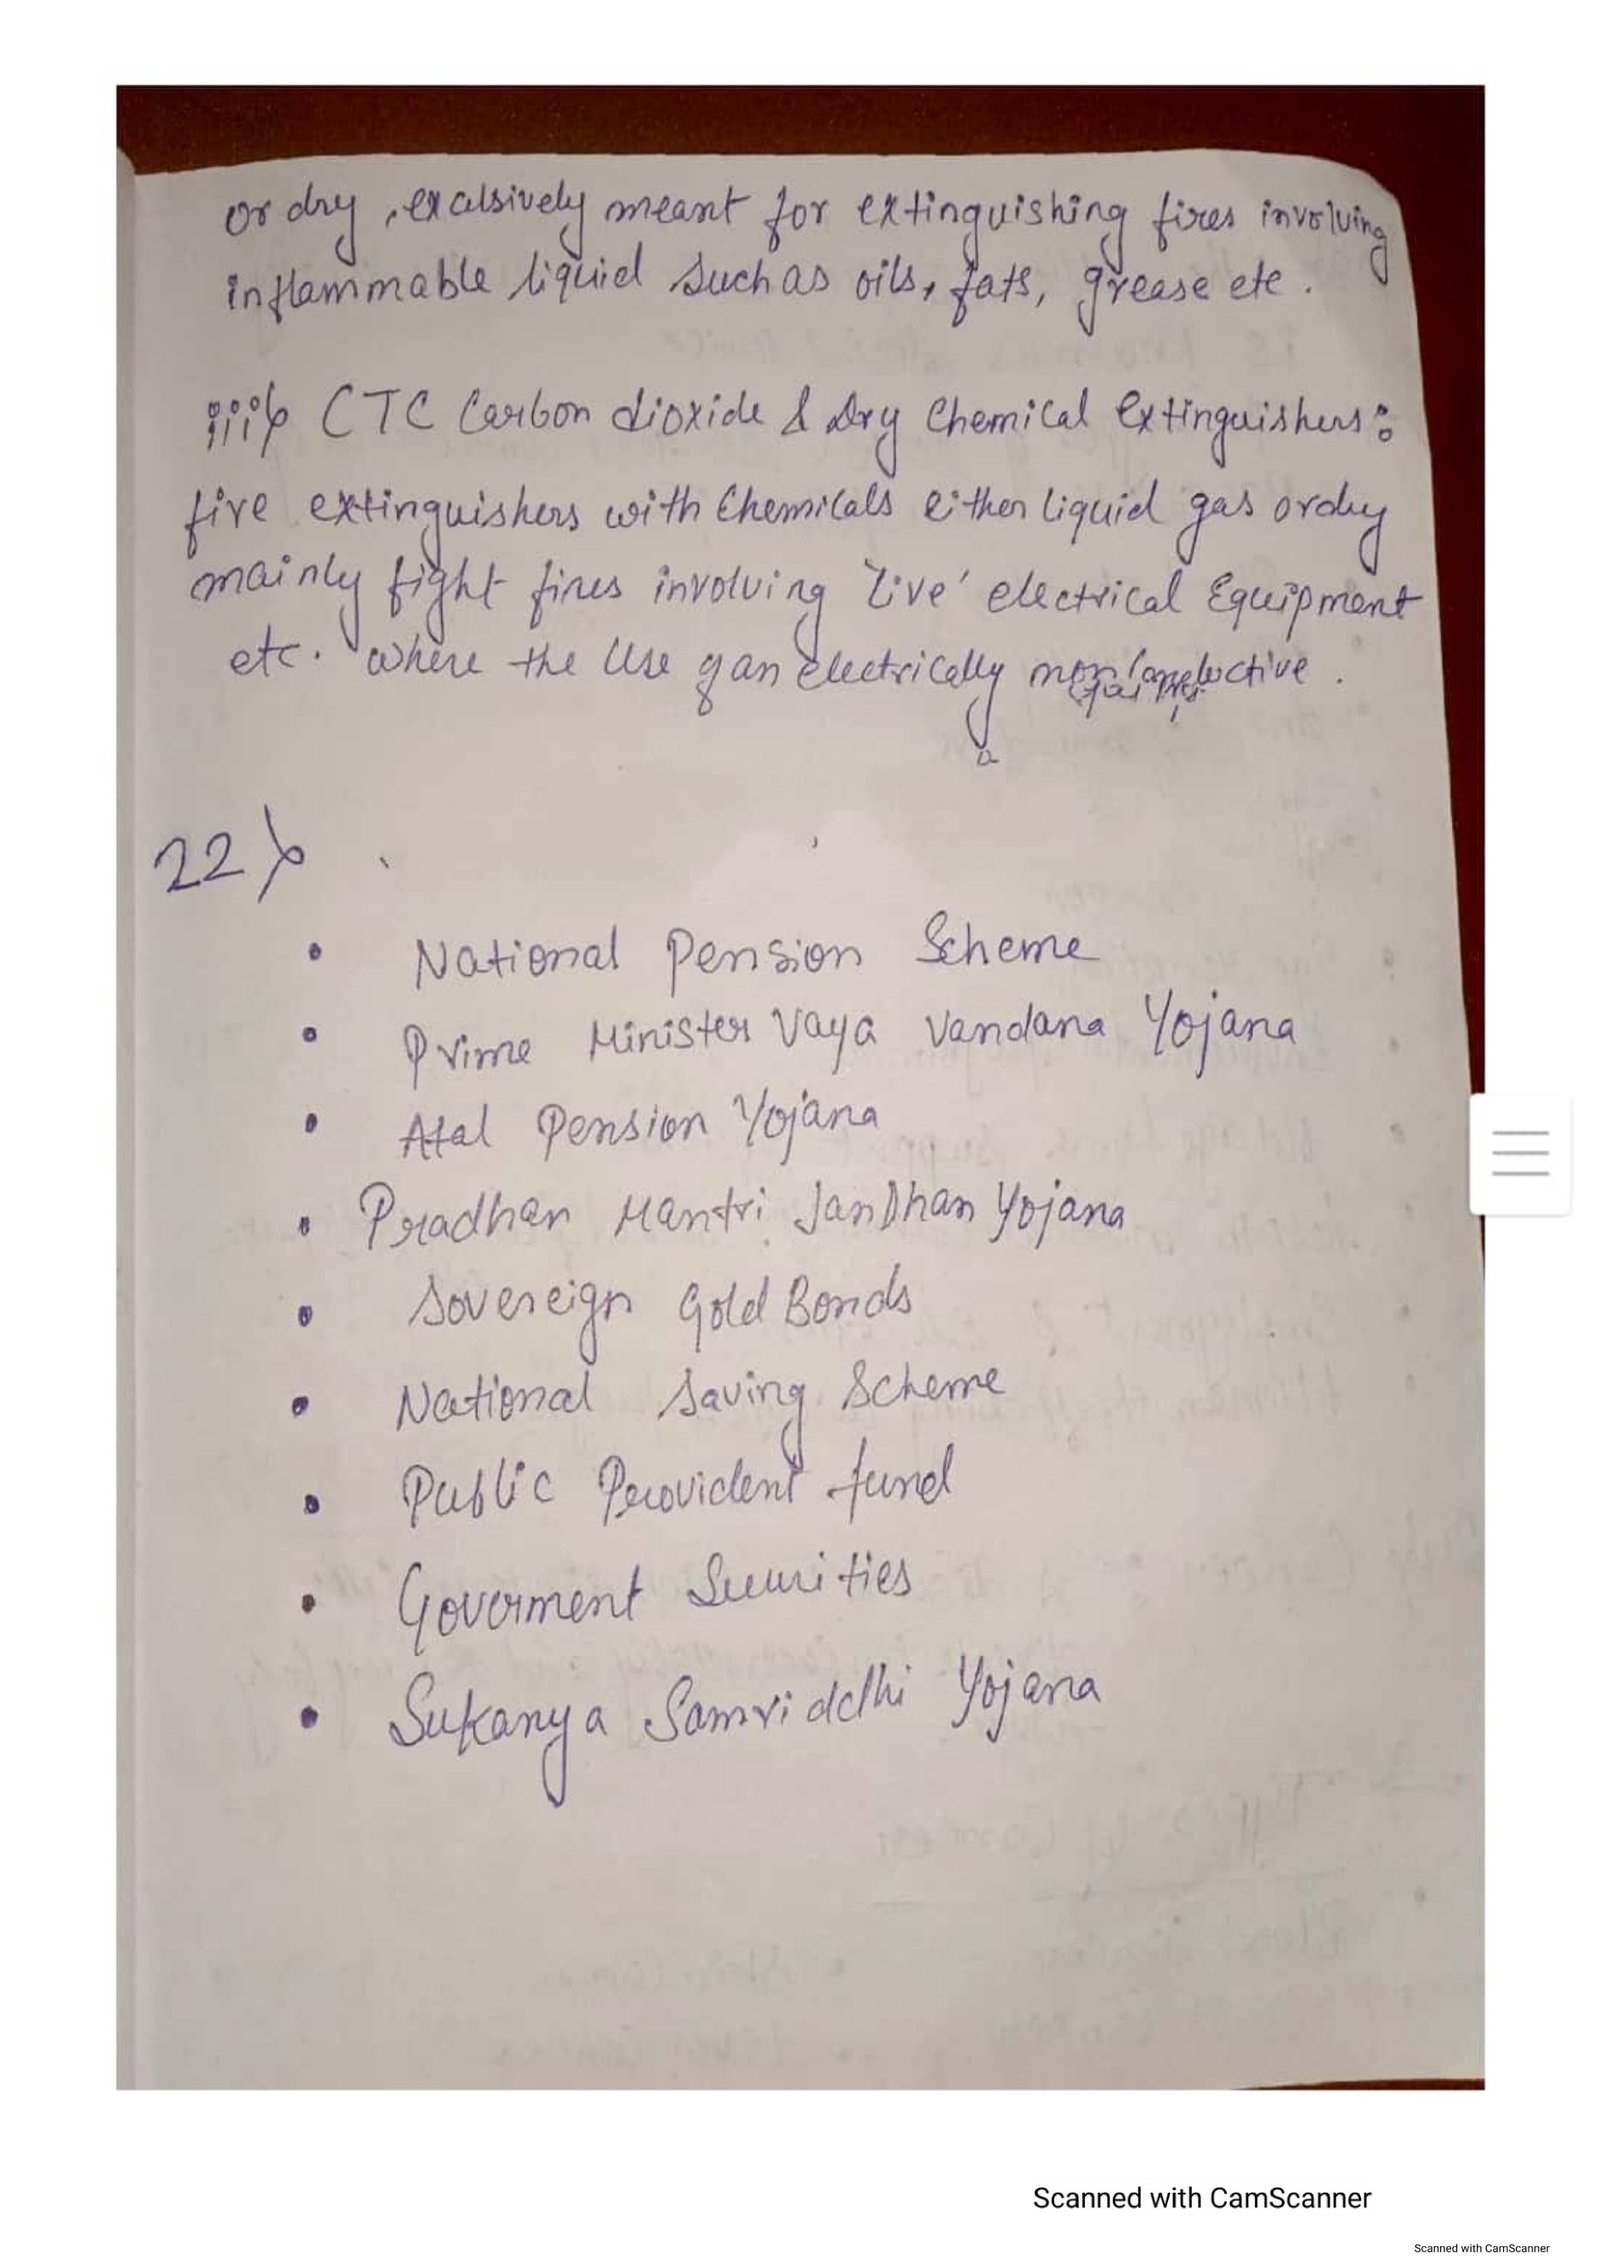 or dry, exculsively meant for extinguishing fires involving
inflammable liquid such as oils, fats, grease etc.
iii) CTC Carbon dioxide & Dry Chemical extinguishers:
fire extinguishers with Chemicals either liquid gas or dry
mainly fight fires involving 'live' electrical Equipment
etc. where the Use of an electrically non conductive.
22)
• National Pension Scheme
• Prime Minister Vaya Vandana Yojana
• Atal Pension Yojana
• Pradhan Mantri Jan Dhan Yojana
• Sovereign Gold Bonds
• National Saving Scheme
• Public Provident fund
• Goverment Securities
• Sukanya Samriddhi Yojana
Scanned with CamScanner
Scanned with CamScanner